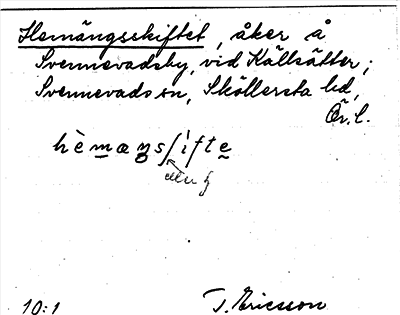 Hemängsskiftet, åker å
Svennevadsby, vid Källsätter;
Svennevads sn, Sköllersta hd,
Ör. l.
hèmæŋsʃifte
eller
10:1
T. Ericsson